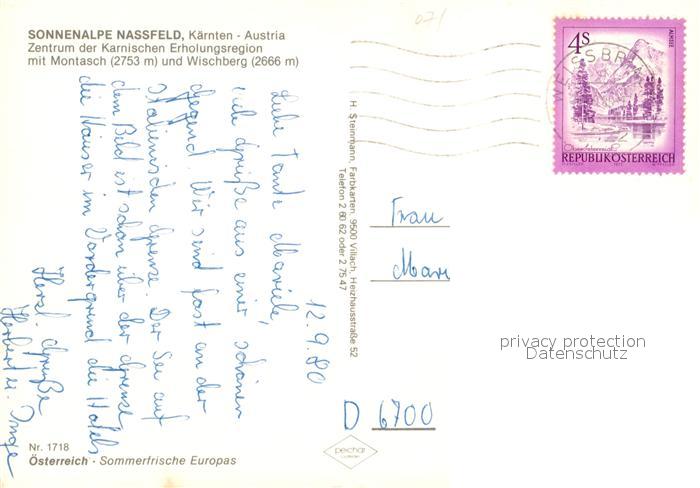 SONNENALPE NASSFELD, Kärnten - Austria
Zentrum der Karnischen Erholungsregion
mit Montasch (2753 m) und Wischberg (2666 m)
071
4S
ALMSEE
Oberösterreich
REPUBLIK ÖSTERREICH
12.9.80
Liebe Tante Mariele,
viele Grüße aus einer schönen
Gegend. Wir sind fast an der
italienischen Grenze. Der See auf
dem Bild ist schon über der Grenze,
die Häuser im Vordergrund die Hotels
Herzl. Grüße
Herbert u. Inge
H. Steinmann, Farbkarten, 9500 Villach, Heizhausstraße 52
Telefon 2 60 62 oder 2 75 47
Frau
Mari
privacy protection
Datenschutz
D 6700
Nr. 1718
Österreich · Sommerfrische Europas